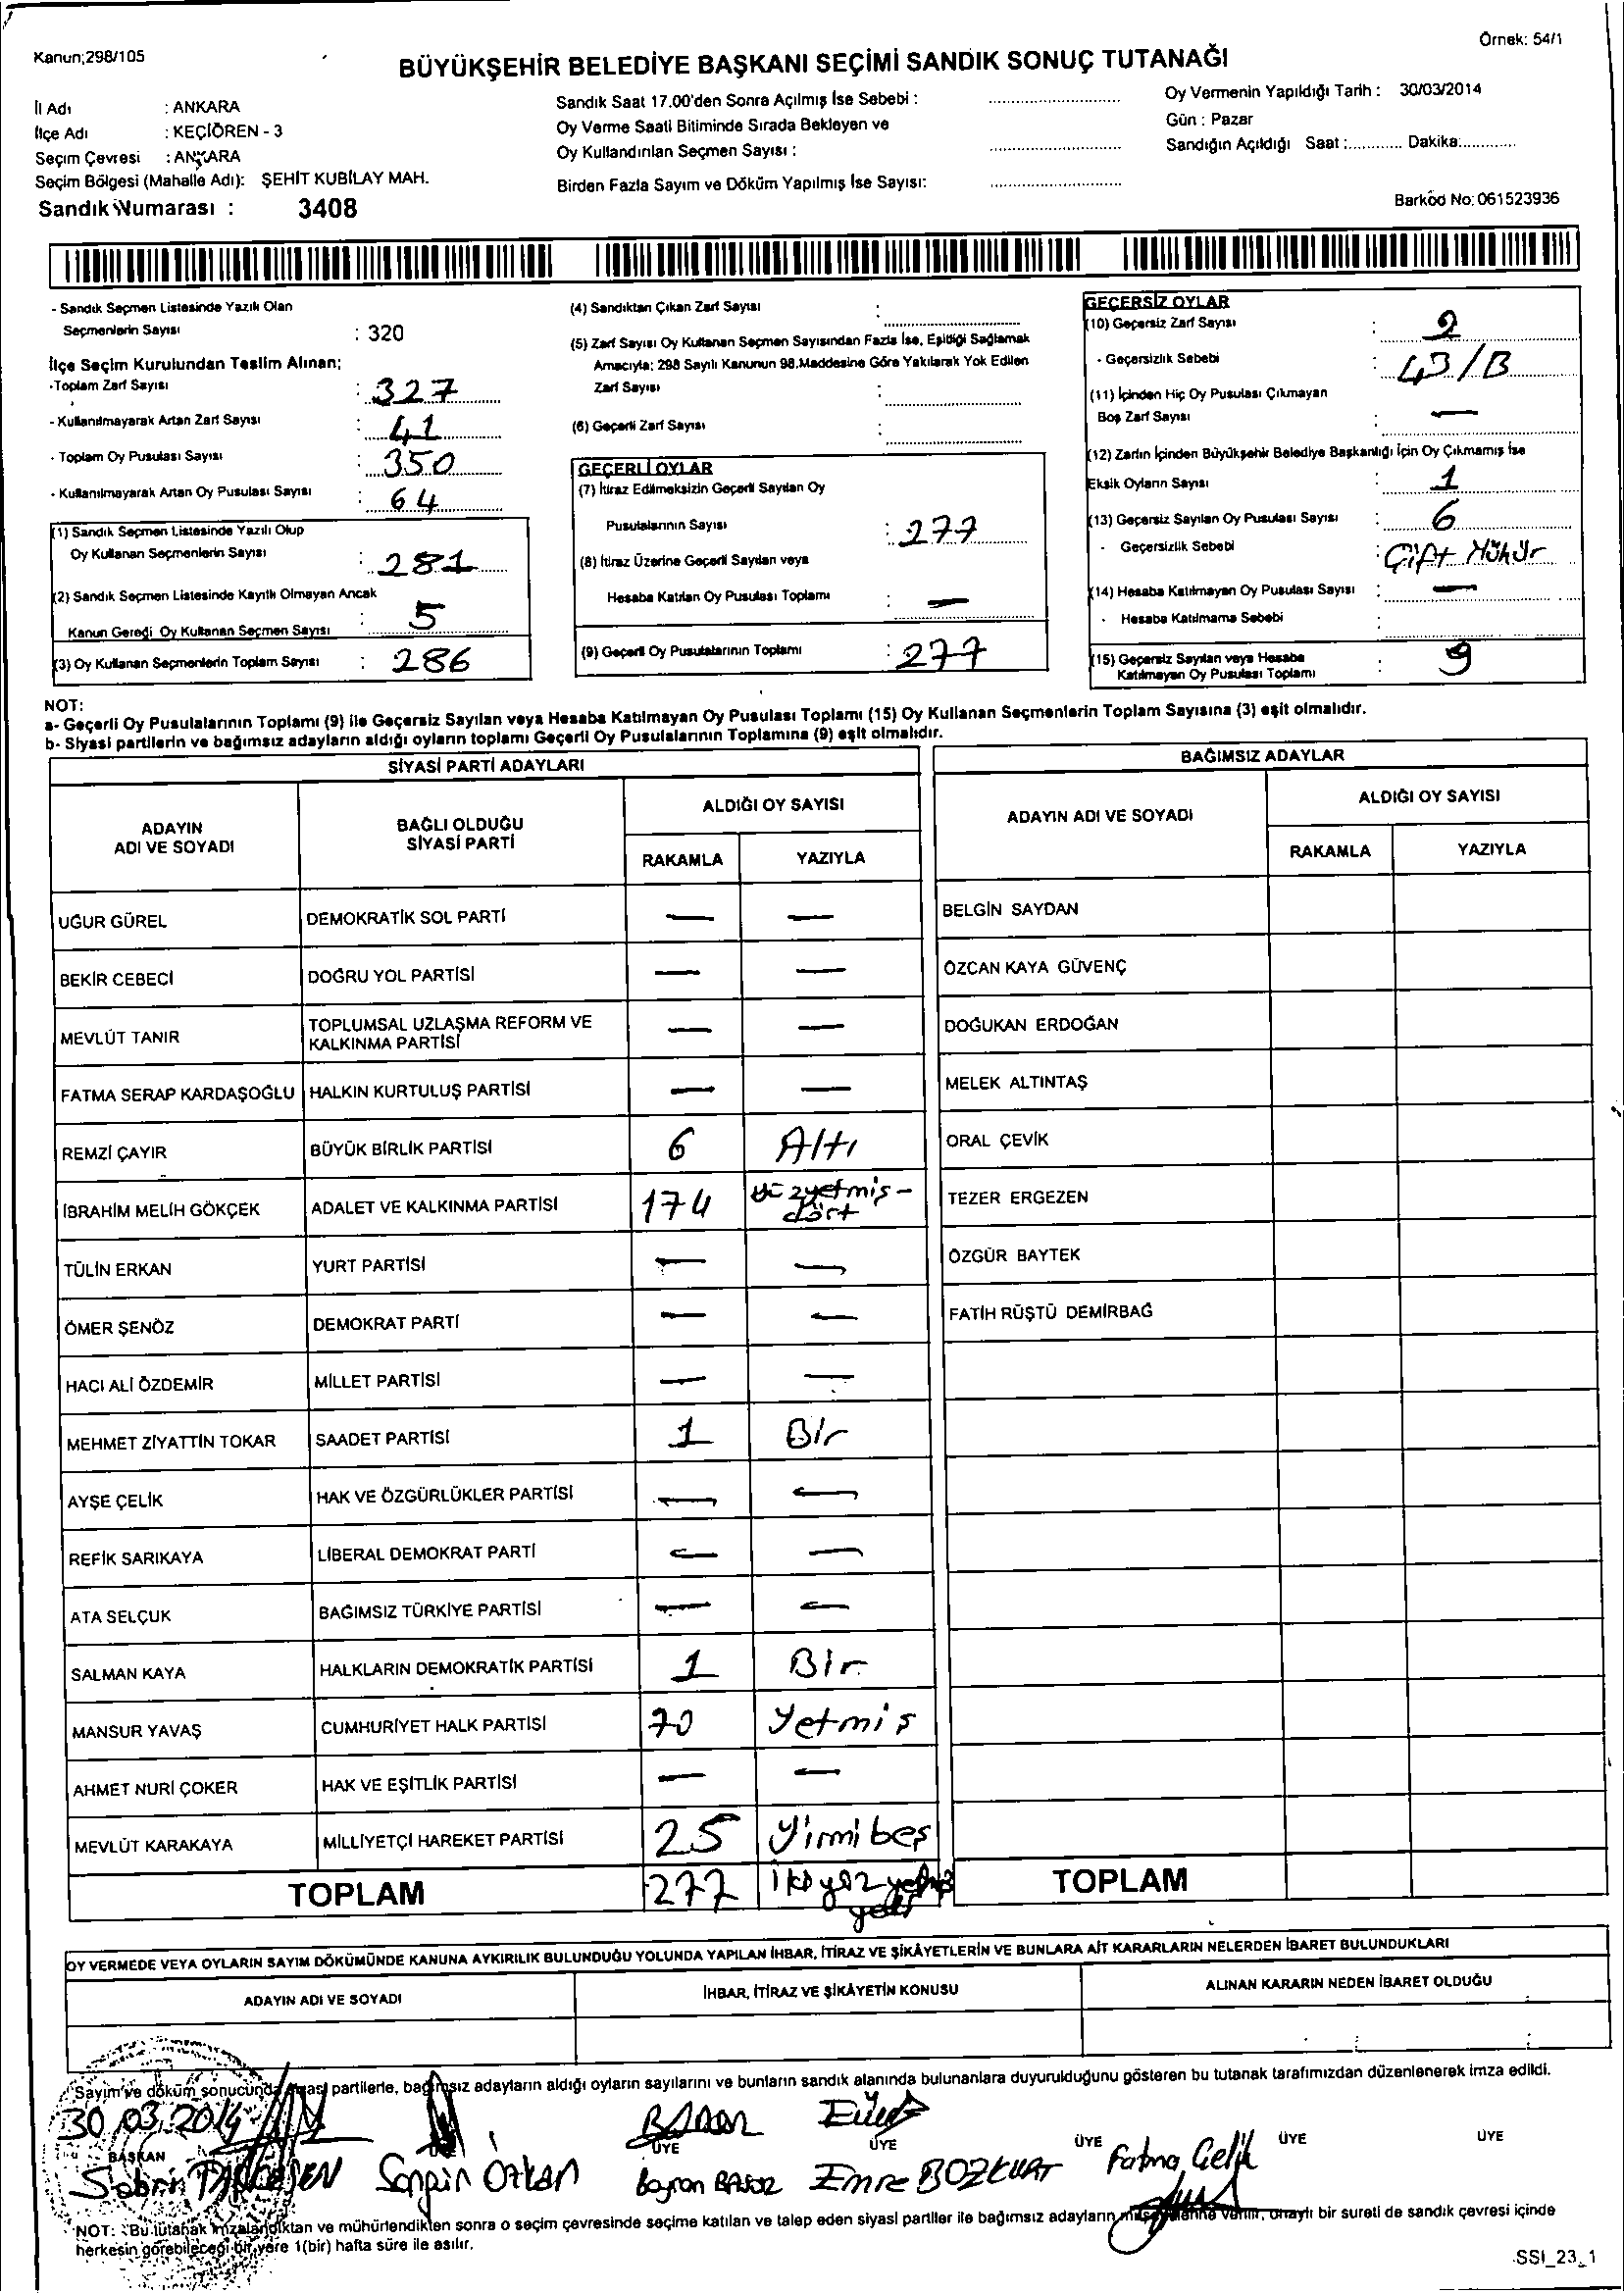 Örnek: 54/1
Kanun;298/105
BÜYÜKŞEHİR BELEDİYE BAŞKANI SEÇİMİ SANDIK SONUÇ TUTANAĞI
İl Adı : ANKARA
İlçe Adı : KEÇİÖREN - 3
Seçim Çevresi : ANKARA
Seçim Bölgesi (Mahalle Adı): ŞEHİT KUBİLAY MAH.
Sandık Numarası : 3408
Sandık Saat 17.00'den Sonra Açılmış İse Sebebi :
Oy Verme Saati Bitiminde Sırada Bekleyen ve
Oy Kullandırılan Seçmen Sayısı :
Birden Fazla Sayım ve Döküm Yapılmış İse Sayısı:
Oy Vermenin Yapıldığı Tarih : 30/03/2014
Gün : Pazar
Sandığın Açıldığı Saat :............ Dakika:............
Barkod No: 061523936
- Sandık Seçmen Listesinde Yazılı Olan
Seçmenlerin Sayısı : 320
İlçe Seçim Kurulundan Teslim Alınan;
-Toplam Zarf Sayısı : 327
- Kullanılmayarak Artan Zarf Sayısı : 41
- Toplam Oy Pusulası Sayısı : 350
- Kullanılmayarak Artan Oy Pusulası Sayısı : 64
(1) Sandık Seçmen Listesinde Yazılı Olup
Oy Kullanan Seçmenlerin Sayısı : 281
(2) Sandık Seçmen Listesinde Kayıtlı Olmayan Ancak
Kanun Gereği Oy Kullanan Seçmen Sayısı : 5
(3) Oy Kullanan Seçmenlerin Toplam Sayısı : 286
(4) Sandıktan Çıkan Zarf Sayısı :
(5) Zarf Sayısı Oy Kullanan Seçmen Sayısından Fazla İse, Eşitliği Sağlamak
Amacıyla; 298 Sayılı Kanunun 98.Maddesine Göre Yakılarak Yok Edilen
Zarf Sayısı :
(6) Geçerli Zarf Sayısı :
GEÇERLİ OYLAR
(7) İtiraz Edilmeksizin Geçerli Sayılan Oy
Pusulalarının Sayısı : 277
(8) İtiraz Üzerine Geçerli Sayılan veya
Hesaba Katılan Oy Pusulası Toplamı : —
(9) Geçerli Oy Pusulalarının Toplamı : 277
GEÇERSİZ OYLAR
(10) Geçersiz Zarf Sayısı : 2
- Geçersizlik Sebebi : 43/B
(11) İçinden Hiç Oy Pusulası Çıkmayan
Boş Zarf Sayısı : —
(12) Zarfın İçinden Büyükşehir Belediye Başkanlığı İçin Oy Çıkmamış İse
Eksik Oyların Sayısı : 1
(13) Geçersiz Sayılan Oy Pusulası Sayısı : 6
- Geçersizlik Sebebi : Çift Mühür
(14) Hesaba Katılmayan Oy Pusulası Sayısı : —
- Hesaba Katılmama Sebebi :
(15) Geçersiz Sayılan veya Hesaba
Katılmayan Oy Pusulası Toplamı : 9
NOT:
a- Geçerli Oy Pusulalarının Toplamı (9) ile Geçersiz Sayılan veya Hesaba Katılmayan Oy Pusulası Toplamı (15) Oy Kullanan Seçmenlerin Toplam Sayısına (3) eşit olmalıdır.
b- Siyasi partilerin ve bağımsız adayların aldığı oyların toplamı Geçerli Oy Pusulalarının Toplamına (9) eşit olmalıdır.
SİYASİ PARTİ ADAYLARI
ADAYIN ADI VE SOYADI
BAĞLI OLDUĞU SİYASİ PARTİ
ALDIĞI OY SAYISI
RAKAMLA YAZIYLA
UĞUR GÜREL DEMOKRATİK SOL PARTİ — —
BEKİR CEBECİ DOĞRU YOL PARTİSİ — —
MEVLÜT TANIR TOPLUMSAL UZLAŞMA REFORM VE KALKINMA PARTİSİ — —
FATMA SERAP KARDAŞOĞLU HALKIN KURTULUŞ PARTİSİ — —
REMZİ ÇAYIR BÜYÜK BİRLİK PARTİSİ 6 Altı
İBRAHİM MELİH GÖKÇEK ADALET VE KALKINMA PARTİSİ 174 yüzyetmiş-dört
TÜLİN ERKAN YURT PARTİSİ — —
ÖMER ŞENÖZ DEMOKRAT PARTİ — —
HACI ALİ ÖZDEMİR MİLLET PARTİSİ — —
MEHMET ZİYATTİN TOKAR SAADET PARTİSİ 1 Bir
AYŞE ÇELİK HAK VE ÖZGÜRLÜKLER PARTİSİ — —
REFİK SARIKAYA LİBERAL DEMOKRAT PARTİ — —
ATA SELÇUK BAĞIMSIZ TÜRKİYE PARTİSİ — —
SALMAN KAYA HALKLARIN DEMOKRATİK PARTİSİ 1 Bir
MANSUR YAVAŞ CUMHURİYET HALK PARTİSİ 70 Yetmiş
AHMET NURİ ÇOKER HAK VE EŞİTLİK PARTİSİ — —
MEVLÜT KARAKAYA MİLLİYETÇİ HAREKET PARTİSİ 25 Yirmibeş
TOPLAM 277 ikiyüzyetmiş yedi
BAĞIMSIZ ADAYLAR
ADAYIN ADI VE SOYADI
ALDIĞI OY SAYISI
RAKAMLA YAZIYLA
BELGİN SAYDAN
ÖZCAN KAYA GÜVENÇ
DOĞUKAN ERDOĞAN
MELEK ALTINTAŞ
ORAL ÇEVİK
TEZER ERGEZEN
ÖZGÜR BAYTEK
FATİH RÜŞTÜ DEMİRBAĞ
TOPLAM
OY VERMEDE VEYA OYLARIN SAYIM DÖKÜMÜNDE KANUNA AYKIRILIK BULUNDUĞU YOLUNDA YAPILAN İHBAR, İTİRAZ VE ŞİKÂYETLERİN VE BUNLARA AİT KARARLARIN NELERDEN İBARET BULUNDUKLARI
ADAYIN ADI VE SOYADI İHBAR, İTİRAZ VE ŞİKÂYETİN KONUSU ALINAN KARARIN NEDEN İBARET OLDUĞU
Sayım ve döküm sonucunda siyasi partilerle, bağımsız adayların aldığı oyların sayılarını ve bunların sandık alanında bulunanlara duyurulduğunu gösteren bu tutanak tarafımızdan düzenlenerek imza edildi.
30.03.2014
BAŞKAN ÜYE ÜYE ÜYE ÜYE ÜYE
Sabri Özkan Emre BOZKURT Fatma Çelik
NOT: Bu tutanak imzalandıktan ve mühürlendikten sonra o seçim çevresinde seçime katılan ve talep eden siyasi partiler ile bağımsız adayların verilir, onaylı bir sureti de sandık çevresi içinde
herkesin görebileceği bir yere 1(bir) hafta süre ile asılır.
SSI_23_1